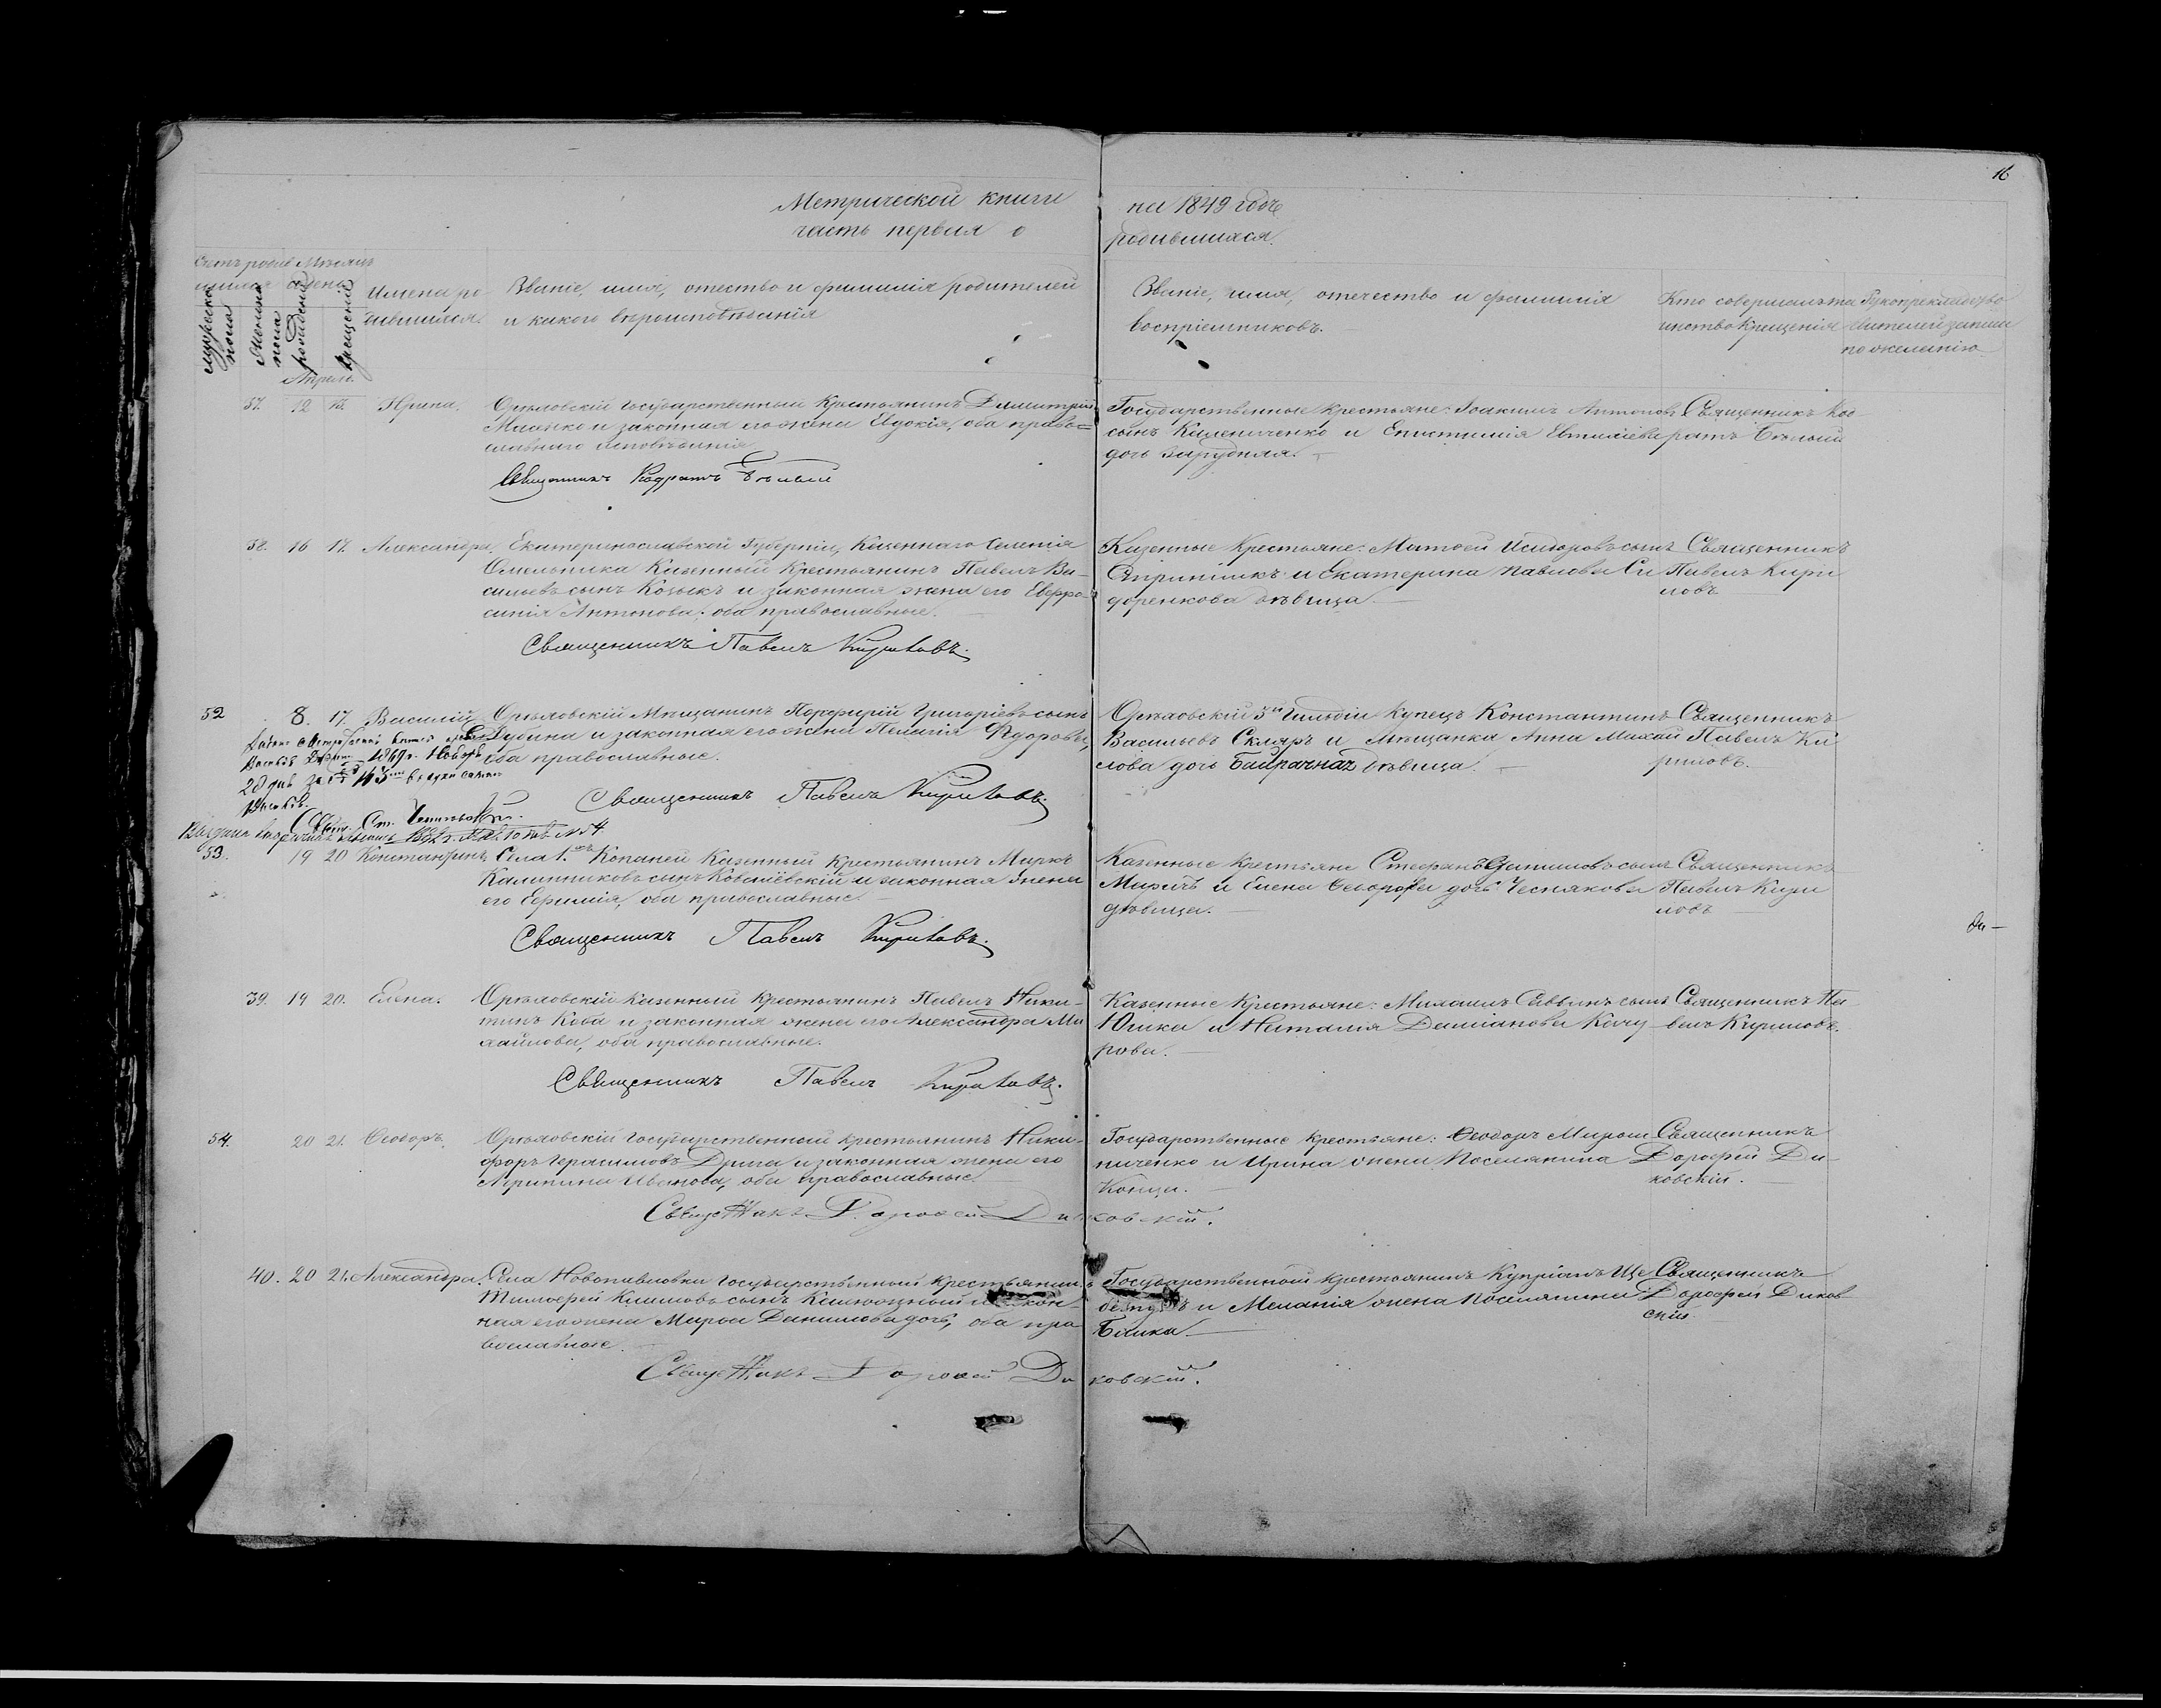 16
Метрической книги на 1849 годъ
часть первая о родившихся.
Счетъ родив Мѣсяцъ
шихся и день
мужеска пола
женска пола
рожденія
крещенія
Имена ро
дившихся.
Званіе, имя, отчество и фамилія родителей
и какого вѣроисповѣданія
Званіе, имя, отечество и фамилія
воспріемниковъ.
Кто совершалъ та
инство крещенія
Рукоприкладство
свидѣтелей записи
по желанію
Апрѣль
37. 12 13. Ирина. Орѣховскій государственный крестьянинъ Димитрій
и законная его жена Евдокія, оба право=
славнаго исповѣданія
Священникъ Кодратъ Бѣлый
Государственные крестьяне: Іоакимъ Антоновъ
сынъ Калениченко и Епистимія Евтихіева
дочь Зарудняя.
Священникъ Код
ратъ Бѣлый
38. 16 17. Александра. Екатеринославской Губерніи, Казеннаго Селенія
Омельника Казенный Крестьянинъ Павелъ Ва-
сильевъ сынъ Козыкъ и законная жена его Евфро-
синія Антонова; оба православные.
Священникъ Павелъ Кириловъ.
Казенные Крестьяне: Матвей Исидоровъ сынъ
и Екатерина Павлова Си
доренкова дѣвица
Священникъ
Павелъ Кири
ловъ
52 8. 17. Василій Орѣховскій Мѣщанинъ Порфирій Григоріевъ сынъ
Дубина и законная его жена Пелагія Фдорова,
оба православные.
Священникъ Павелъ Кириловъ.
Орѣховскій 3й Гильдіи Купецъ Константинъ
Васильевъ Скляръ и Мѣщанка Анна Михай
лова дочь дѣвица.
Священникъ
Павелъ Ки
риловъ.
1869 г. Ноября
28 дня за №
53. 19 20 Константинъ Села 1. Копаней Казенный Крестьянинъ Маркъ
Калинниковъ сынъ Ковалевскій и законная жена
его Евфимія, оба православные.
Священникъ Павелъ Кириловъ.
Казенные Крестьяне Стефанъ Даниловъ сынъ
и Елена Феодорова дочь Чеснякова
дѣвица.
Священникъ
Павелъ Кири
ловъ
39. 19 20. Елена. Орѣховскій казенный Крестьянинъ Павелъ Ники-
тинъ Коба и законная жена его Александра Ми
хайлова, оба православные.
Священникъ Павелъ Кириловъ.
Казенные Крестьяне: Михаилъ Саввинъ сынъ
Юшка и Наталія Даміанова Качу
рова.
Священникъ Па
велъ Кириловъ.
54. 20 21. Ѳеодоръ. Орѣховскій государственный крестьянинъ Ники-
форъ Герасимовъ и законная жена его
Агрипина Иванова, оба православные
Священникъ Дорофей Диковскій.
Государственные крестьяне: Ѳеодоръ Мирош
ниченко и Ирина жена Поселянина
Священникъ
Дорофей Ди-
ковскій.
40. 20 21. Александра. Села Новопавловки государственный крестьянинъ
Тимофей Климовъ сынъ и закон-
ная его жена Марѳа Данилова дочь, оба пра
вославные.
Священникъ Дорофей Диковскій.
Государственный крестьянинъ Купріанъ
и Меланія жена Поселянина
Священникъ
Дорофей Диков
скій